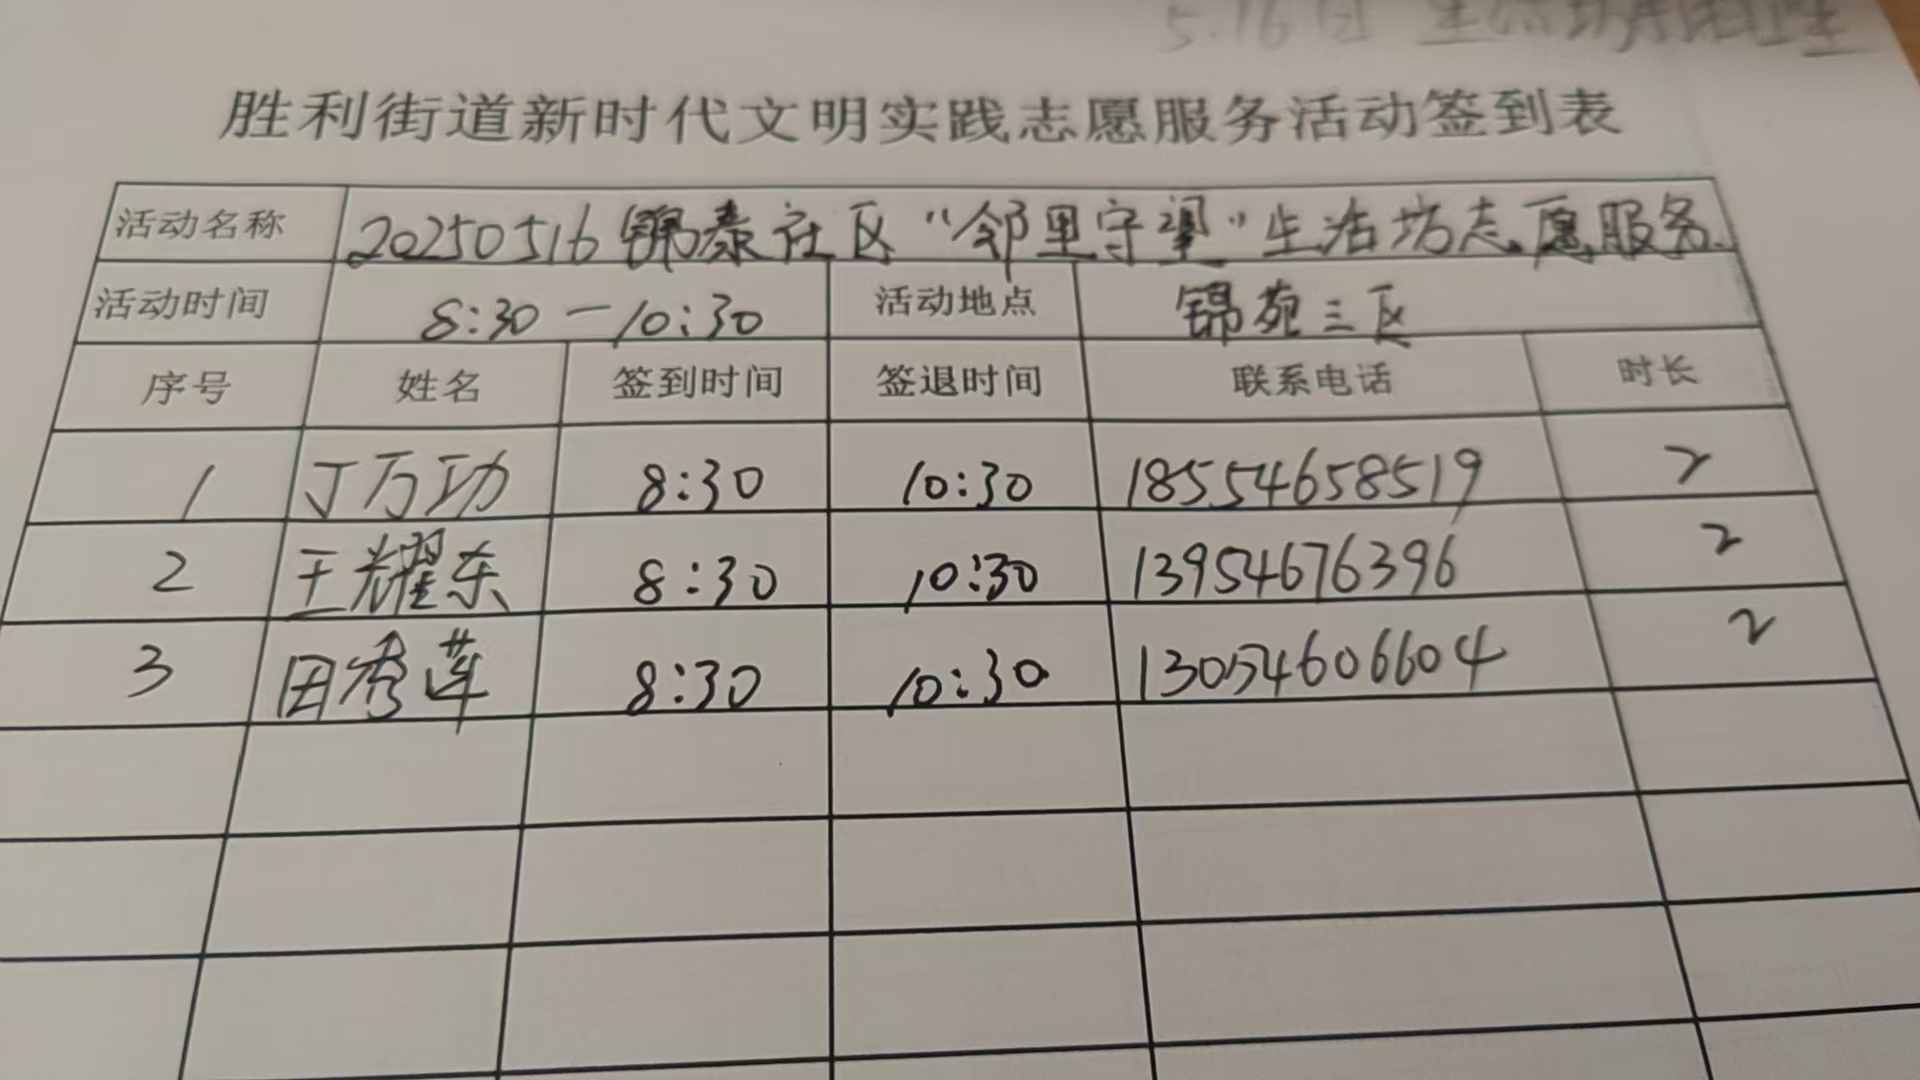 5.16日
胜利街道新时代文明实践志愿服务活动签到表
活动名称 20250516锦泰社区“邻里守望”生活坊志愿服务
活动时间 8:30—10:30 活动地点 锦苑三区
序号 姓名 签到时间 签退时间 联系电话 时长
1 丁万功 8:30 10:30 18554658519 2
2 王耀东 8:30 10:30 13954676396 2
3 田秀莲 8:30 10:30 13054606604 2